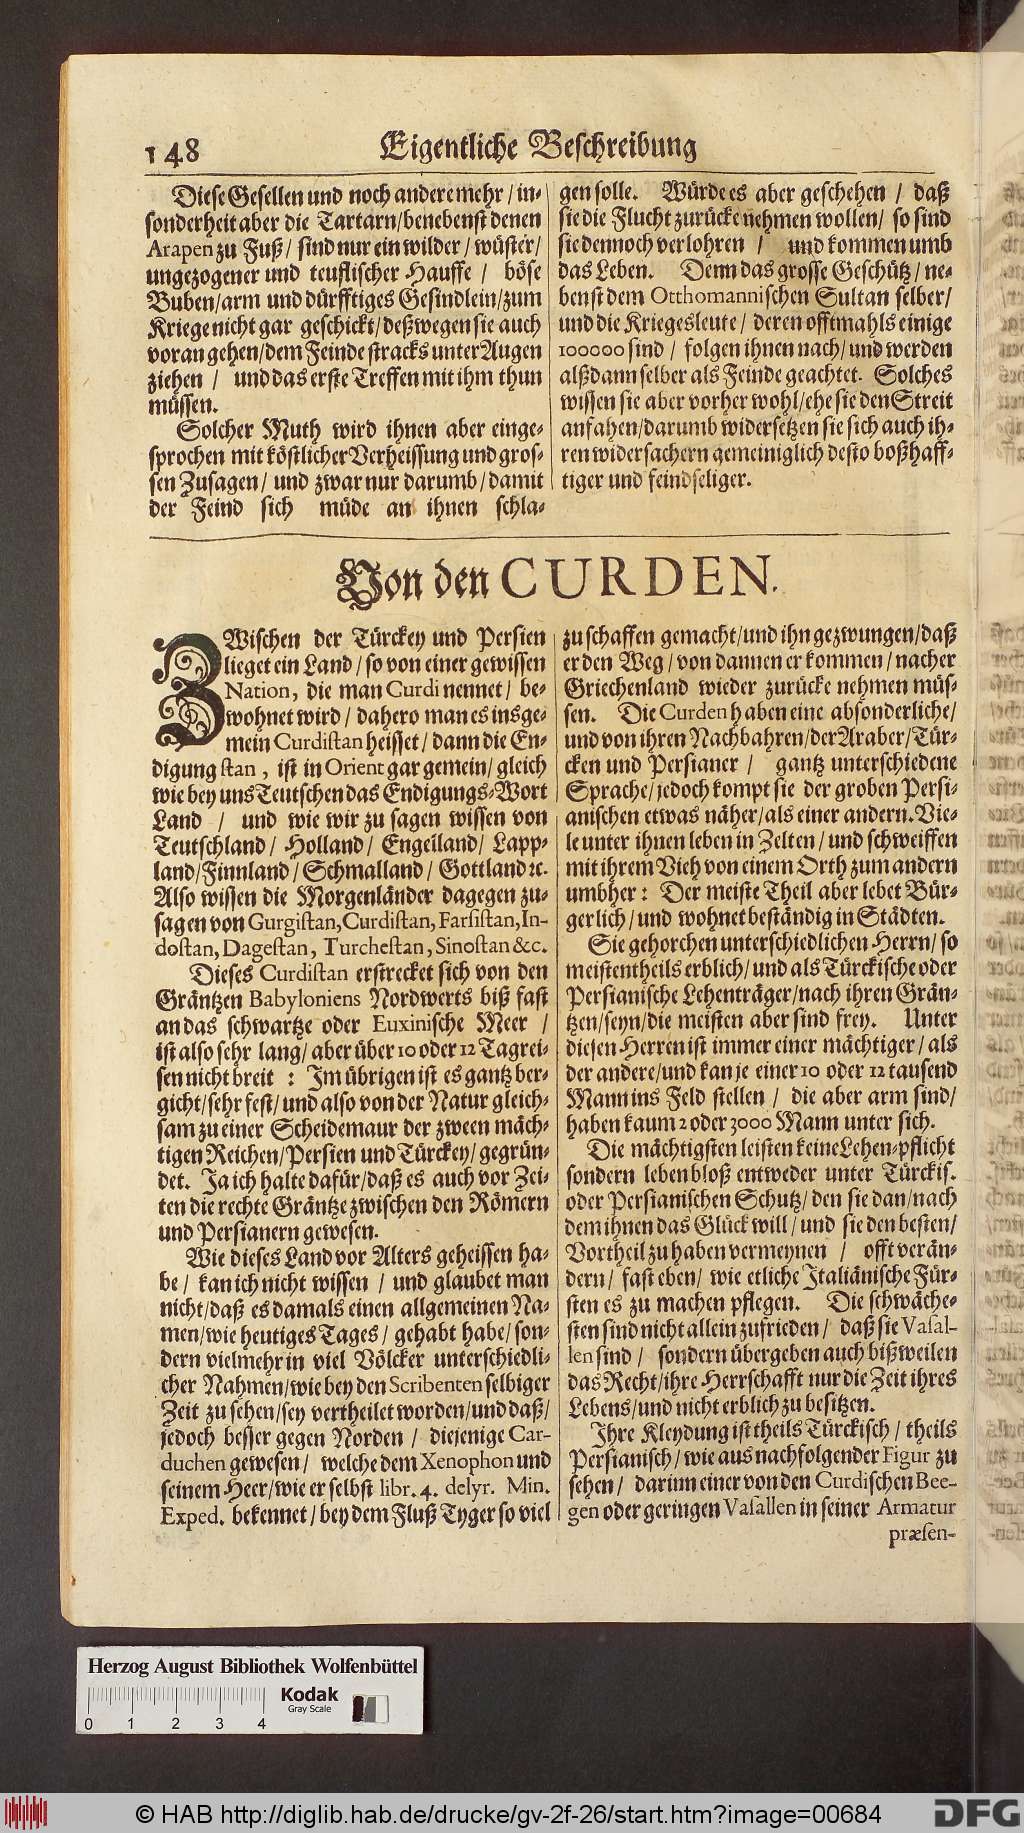 148
Eigentliche Beschreibung
Diese Gesellen und noch andere mehr / in-
sonderheit aber die Tartarn/benebenst denen
Arapen zu Fuß/ sind nur ein wilder / wüster/
ungezogener und teuflischer Hauffe / böse
Buben/arm und dürfftiges Gesindlein/zum
Kriege nicht gar geschickt/deßwegen sie auch
voran gehen/dem Feinde stracks unter Augen
ziehen / und das erste Treffen mit ihm thun
müssen.
Solcher Muth wird ihnen aber einge-
sprochen mit köstlicher Verheissung und gros-
sen Zusagen/ und zwar nur darumb/damit
der Feind sich müde an ihnen schla-
gen solle. Würde es aber geschehen / daß
sie die Flucht zurücke nehmen wollen/ so sind
sie dennoch verlohren / und kommen umb
das Leben. Denn das grosse Geschütz/ ne-
benst dem Otthomannischen Sultan selber/
und die Kriegesleute / deren offtmahls einige
100000 sind / folgen ihnen nach/und werden
alßdann selber als Feinde geachtet. Solches
wissen sie aber vorher wohl/ehe sie den Streit
anfahen/darumb widersetzen sie sich auch ih-
ren widersachern gemeiniglich desto boßhaff-
tiger und feindseliger.
Von den CURDEN.
ZWischen der Türckey und Persien
lieget ein Land/ so von einer gewissen
Nation, die man Curdi nennet/ be-
wohnet wird/ dahero man es insge-
mein Curdistan heisset/ dann die En-
digung stan, ist in Orient gar gemein/ gleich
wie bey uns Teutschen das Endigungs-Wort
Land / und wie wir zu sagen wissen von
Teutschland/ Holland/ Engeiland/ Lapp-
land/Finnland/Schmalland/ Gottland ꝛc.
Also wissen die Morgenländer dagegen zu-
sagen von Gurgistan, Curdistan, Farsistan, In-
dostan, Dagestan, Turchestan, Sinostan &c.
Dieses Curdistan erstrecket sich von den
Gräntzen Babyloniens Nordwerts biß fast
an das schwartze oder Euxinische Meer /
ist also sehr lang/ aber über 10 oder 12 Tagrei-
sen nicht breit : Im übrigen ist es gantz ber-
gicht/sehr fest/und also von der Natur gleich-
sam zu einer Scheidemaur der zween mäch-
tigen Reichen/Persien und Türckey/ gegrün-
det. Ja ich halte dafür/daß es auch vor Zei-
ten die rechte Gräntze zwischen den Römern
und Persianern gewesen.
Wie dieses Land vor Alters geheissen ha-
be / kan ich nicht wissen / und glaubet man
nicht/daß es damals einen allgemeinen Na-
men/wie heutiges Tages/ gehabt habe/son-
dern vielmehr in viel Völcker unterschiedli-
cher Nahmen/wie bey den Scribenten selbiger
Zeit zu sehen/sey vertheilet worden/und daß/
jedoch besser gegen Norden / diejenige Car-
duchen gewesen/ welche dem Xenophon und
seinem Heer/wie er selbst libr. 4. de lyr. Min.
Exped. bekennet/bey dem Fluß Tyger so viel
zu schaffen gemacht/und ihn gezwungen/daß
er den Weg / von dannen er kommen / nacher
Griechenland wieder zurücke nehmen müs-
sen. Die Curden haben eine absonderliche/
und von ihren Nachbahren/der Araber/Tür-
cken und Persianer / gantz unterschiedene
Sprache/jedoch kompt sie der groben Persi-
anischen etwas näher/als einer andern. Vie-
le unter ihnen leben in Zelten/und schweiffen
mit ihrem Vieh von einem Orth zum andern
umbher : Der meiste Theil aber lebet Bür-
gerlich/und wohnet beständig in Städten.
Sie gehorchen unterschiedlichen Herrn/ so
meistentheils erblich/und als Türckische oder
Persianische Lehenträger/nach ihren Grän-
tzen/seyn/die meisten aber sind frey. Unter
diesen Herren ist immer einer mächtiger/ als
der andere/und kan je einer 10 oder 12 tausend
Mann ins Feld stellen / die aber arm sind/
haben kaum 2 oder 3000 Mann unter sich.
Die mächtigsten leisten keine Lehen-pflicht
sondern leben bloß entweder unter Türckis.
oder Persianischen Schutz/den sie dan/nach
dem ihnen das Glück will/und sie den besten/
Vortheil zu haben vermeynen / offt verän-
dern/ fast eben/ wie etliche Italiänische Für-
sten es zu machen pflegen. Die schwäche-
sten sind nicht allein zufrieden/ daß sie Vasal-
len sind / sondern übergeben auch bißweilen
das Recht/ihre Herrschafft nur die Zeit ihres
Lebens/und nicht erblich zu besitzen.
Ihre Kleydung ist theils Türckisch / theils
Persianisch/wie aus nachfolgender Figur zu
sehen/ darinn einer von den Curdischen Bee-
gen oder geringen Vasallen in seiner Armatur
præsen-
Herzog August Bibliothek Wolfenbüttel
Kodak
Gray Scale
0 1 2 3 4
© HAB http://diglib.hab.de/drucke/gv-2f-26/start.htm?image=00684
DFG